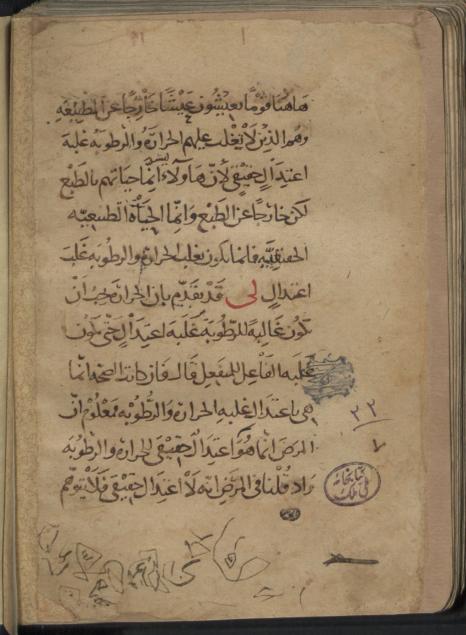 هاهنا قومًا يعيشون عيشًا خارجًا عن الطبيعة
وهم الذين لا يغلب عليهم الحرارة والرطوبة غلبة
اعتدال حقيقي لأن هاولاء ليس انما حياتهم بالطبع
لكن خارجًا عن الطبع وانما الحياة الطبيعية
الحقيقية فانما تكون بغلب الحرارة والرطوبة غلب
اعتدال لى قد تقدم بان الحرارة يجب ان
تكون غالبة للرطوبة غلبة اعتدال حتى تكون
غلبة الفاعل للمنفعل قال فاذ كانت الصحة انما
هي باعتدال غلبة الحرارة والرطوبة فمعلوم ان
المرض انما هو اعتدال حقيقي للحرارة والرطوبة
قلنا في المرض انه لا اعتدال حقيقي فلا يتوهم
٢٢
كتابخانه
ملى ملك